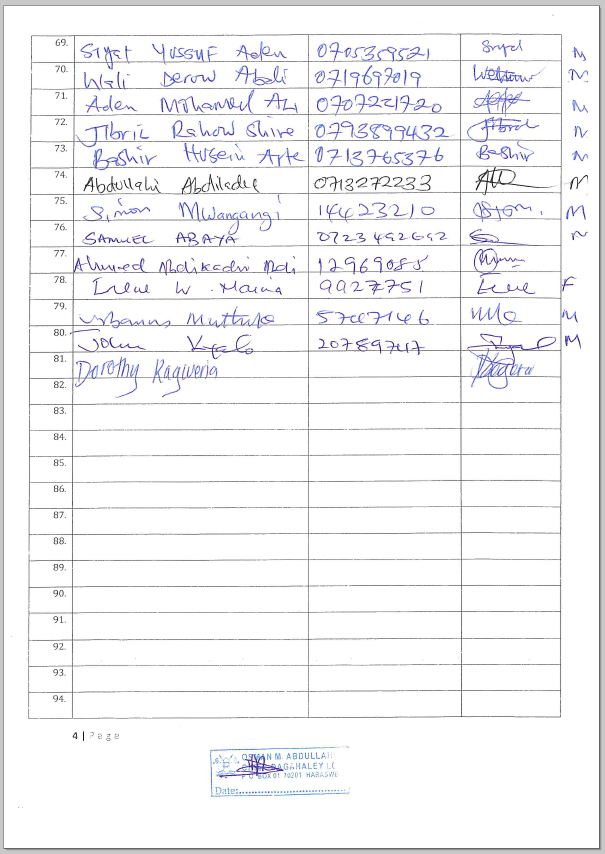 69. Siyat Yussuf Aden 0705359521 Siyat M
70. Wali Derow Abdi 0719697019 M
71. Aden Mohamed Ali 0707221720 M
72. Jibril Rahow Shire 0793899432 Jibril M
73. Bashir Husein Arte 0713765376 Bashir M
74. Abdullahi 0713272233 M
75. Simon Mwangangi 14423210 M
76. SAMUEL ABAYA 0723492692 M
77. Ahmed Abdikadir Abdi 12969085
78. Irene W. Maina 9927751 Irene F
79. Urbanus 57007146 M
80. John 207897417 M
81. Dorothy Kagweria
82.
83.
84.
85.
86.
87.
88.
89.
90.
91.
92.
93.
94.
4 | Page
OSMAN M. ABDULLAH
DAGAHALEY LO
P O BOX 61 70201 HABASWE
Date: